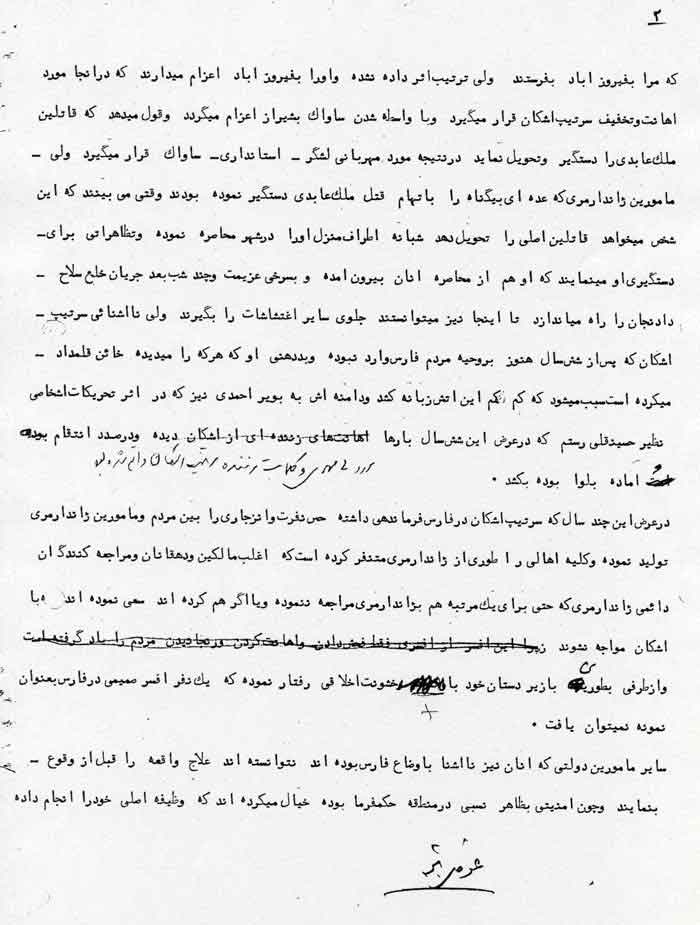 ۲
که مرا بفیروز اباد بفرستند ولی ترتیب اثر داده نشده واورا بفیروز اباد اعزام میدارند که درانجا مورد
اهانت وتخفیف سرتیپ اشکان قرار میگیرد وبا واسطه شدن ساواک بشیراز اعزام میگردد وقول میدهد که قاتلین
ملک عابدی را دستگیر وتحویل نماید درنتیجه مورد مهربانی لشگر ـ استانداری ـ ساواک قرار میگیرد ولی ـ
مامورین ژاندارمری که عده ای بیگناه را باتهام قتل ملک عابدی دستگیر نموده بودند وقتی می بینند که این
شخص میخواهد قاتلین اصلی را تحویل دهد شبانه اطراف منزل اورا درشهر محاصره نموده وتظاهراتی برای ـ
دستگیری او مینمایند که او هم از محاصره انان بیرون امده و بسرخی عزیمت وچند شب بعد جریان خلع سلاح ـ
دادنجان را راه میاندازد تا اینجا نیز میتوانستند جلوی سایر اغتشاشات را بگیرند ولی نااشنائی سرتیپ ـ
اشکان که پس از شش سال هنوز بروحیه مردم فارس وارد نبوده وبددهنی او که هرکه را میدیده خائن قلمداد ـ
میکرده است سبب میشود که کم کم این اتش زبانه کشد ودامنه اش به بویر احمدی نیز که در اثر تحریکات اشخاصی
نظیر حسینقلی رستم که درعرض این شش سال بارها اهانت های زننده ای از اشکان دیده ودرصدد انتقام بوده
سرتیپ اشکان
اماده بلوا بوده بکشد ۰
درعرض این چند سال که سرتیپ اشکان درفارس فرماندهی داشته حس نفرت وانزجاری را بین مردم ومامورین ژاندارمری
تولید نموده وکلیه اهالی را طوری از ژاندارمری متنفر کرده است که اغلب مالکین ودهقانان ومراجعه کنندگان
دائمی ژاندارمری که حتی برای یک مرتبه هم بژاندارمری مراجعه ننموده ویا اگر هم کرده اند سعی نموده اند که با
اشکان مواجه نشوند زیرا این افسر از افسری فقط فحش دادن واهانت کردن ورنجانیدن مردم را یاد گرفته است
وازطرفی بطوری بازیر دستان خود با خشونت اخلاقی رفتار نموده که یک نفر افسر صمیمی درفارس بعنوان
نمونه نمیتوان یافت ۰
سایر مامورین دولتی که انان نیز نااشنا باوضاع فارس بوده اند نتوانسته اند علاج واقعه را قبل از وقوع ـ
بنمایند وچون امنیتی بظاهر نسبی درمنطقه حکمفرما بوده خیال میکرده اند که وظیفه اصلی خودرا انجام داده